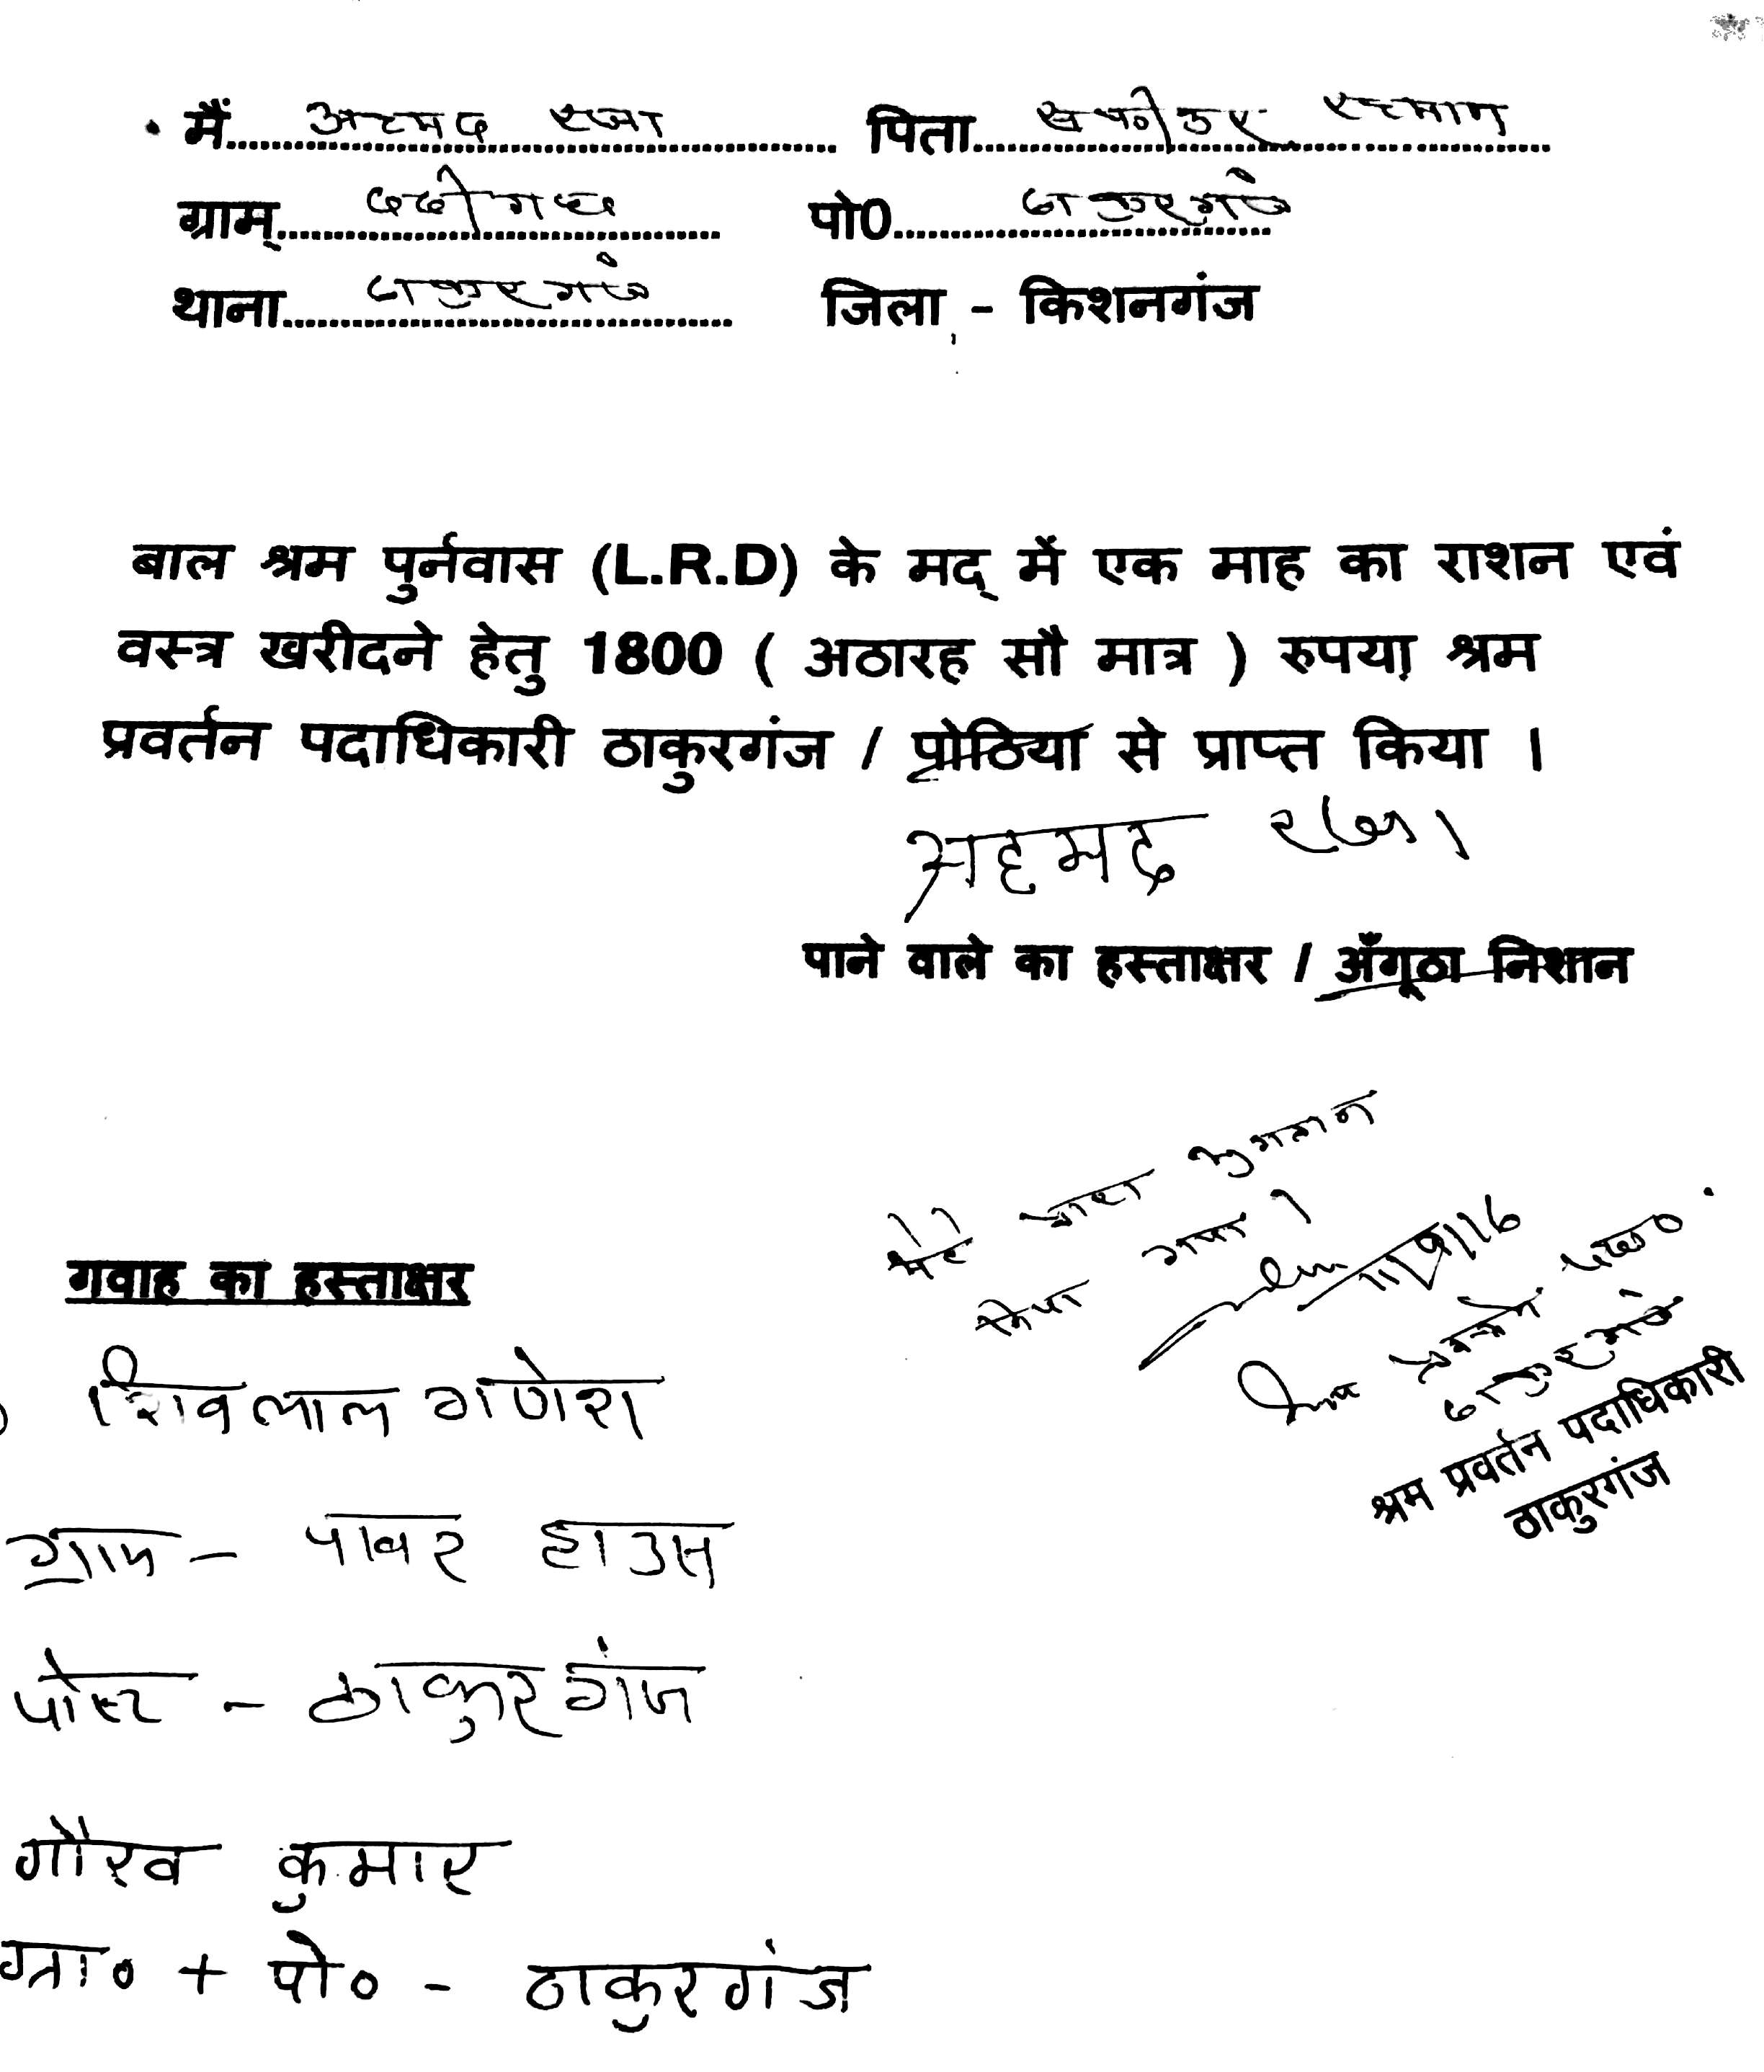 मैं अहमद रजा पिता सफीउर रहमान
ग्राम् पो0 ठाकुरगंज
थाना ठाकुरगंज जिला - किशनगंज
बाल श्रम पुर्नवास (L.R.D) के मद् में एक माह का राशन एवं
वस्त्र खरीदने हेतु 1800 ( अठारह सौ मात्र ) रुपया श्रम
प्रवर्तन पदाधिकारी ठाकुरगंज / पोठिया से प्राप्त किया ।
अहमद रजा
पाने वाले का हस्ताक्षर / अँगूठा निशान
मेरे द्वारा भुगतान
किया गया।
श्रम प्रवर्तन पदा०
ठाकुरगंज
श्रम प्रवर्तन पदाधिकारी
ठाकुरगंज
गवाह का हस्ताक्षर
शिवलाल गणेश
ग्राम - पावर हाउस
पोस्ट - ठाकुरगंज
गौरव कुमार
ग्रा० + पो० - ठाकुरगंज